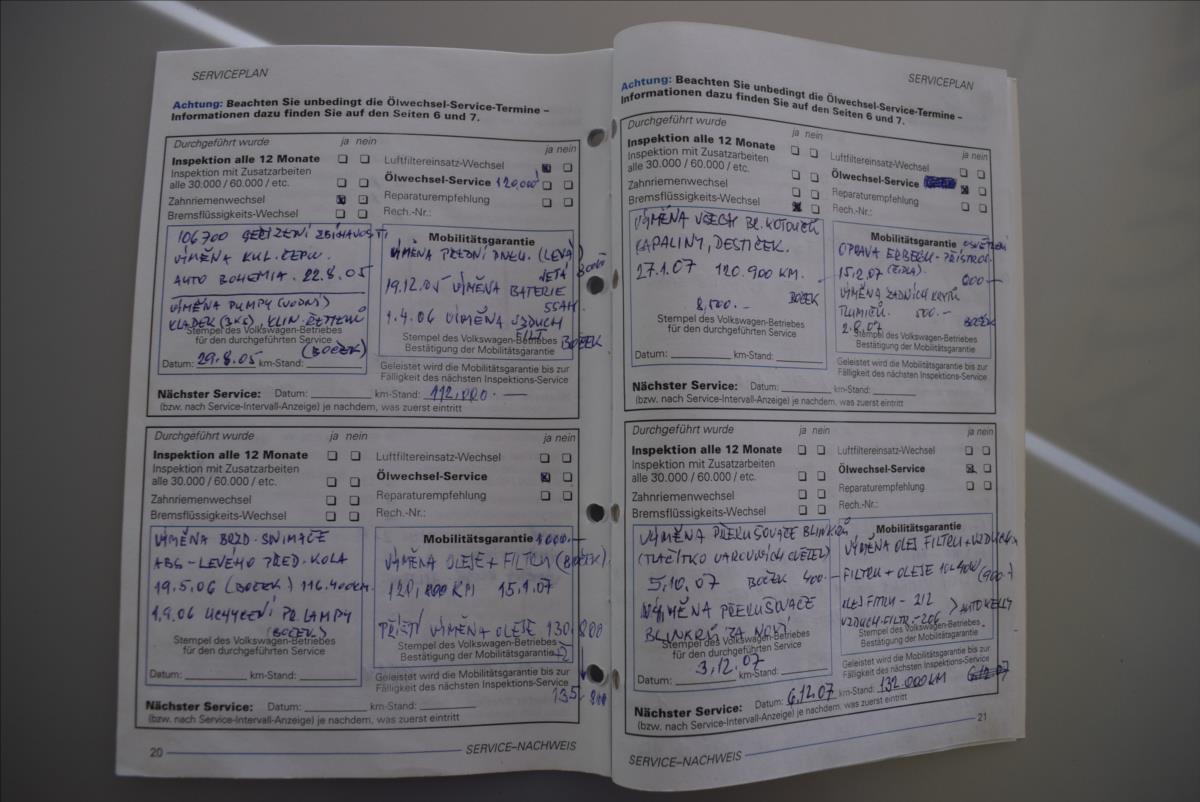 SERVICEPLAN
Achtung: Beachten Sie unbedingt die Ölwechsel-Service-Termine –
Informationen dazu finden Sie auf den Seiten 6 und 7.
Durchgeführt wurde ja nein ja nein
Inspektion alle 12 Monate
Inspektion mit Zusatzarbeiten
alle 30.000 / 60.000 / etc.
Zahnriemenwechsel
Bremsflüssigkeits-Wechsel
Luftfiltereinsatz-Wechsel
Ölwechsel-Service 120,000
Reparaturempfehlung
Rech.-Nr.:
106700 SEŘÍZENÍ SBÍHAVOSTI
VÝMĚNA KUL. ČEPU.
AUTO BOHEMIA. 22.8.05
VÝMĚNA PUMPY (VODNÍ)
KLADEK (3KS), KLIN.
Stempel des Volkswagen-Betriebes
für den durchgeführten Service
(BOČEK)
Datum: 29.8.05 km-Stand:
Mobilitätsgarantie
VÝMĚNA PŘEDNÍ PNEU. (LEVÁ)
19.12.05 VÝMĚNA BATERIE
55AH.
1.4.06 VÝMĚNA VZDUCH
FILT. BOČEK
Stempel des Volkswagen-Betriebes
Bestätigung der Mobilitätsgarantie
Geleistet wird die Mobilitätsgarantie bis zur
Fälligkeit des nächsten Inspektions-Service
Nächster Service: Datum: km-Stand: 112.000.—
(bzw. nach Service-Intervall-Anzeige) je nachdem, was zuerst eintritt
Durchgeführt wurde ja nein ja nein
Inspektion alle 12 Monate
Inspektion mit Zusatzarbeiten
alle 30.000 / 60.000 / etc.
Zahnriemenwechsel
Bremsflüssigkeits-Wechsel
Luftfiltereinsatz-Wechsel
Ölwechsel-Service
Reparaturempfehlung
Rech.-Nr.:
VÝMĚNA BRZD. SNÍMAČE
ABS – LEVÉHO PŘED. KOLA
19.5.06 (BOČEK) 116.400KM.
1.9.06 UCHYCENÍ PŘ. LAMPY
(BOČEK)
Stempel des Volkswagen-Betriebes
für den durchgeführten Service
Datum: km-Stand:
Mobilitätsgarantie 1000.—
VÝMĚNA OLEJE + FILTRU (BOČEK)
120,800 KM 15.1.07
PŘÍŠTÍ VÝMĚNA OLEJE 130.800
Stempel des Volkswagen-Betriebes
Bestätigung der Mobilitätsgarantie
Geleistet wird die Mobilitätsgarantie bis zur
Fälligkeit des nächsten Inspektions-Service
Nächster Service: Datum: km-Stand:
(bzw. nach Service-Intervall-Anzeige) je nachdem, was zuerst eintritt
20 SERVICE–NACHWEIS
SERVICEPLAN
Achtung: Beachten Sie unbedingt die Ölwechsel-Service-Termine –
Informationen dazu finden Sie auf den Seiten 6 und 7.
Durchgeführt wurde ja nein ja nein
Inspektion alle 12 Monate
Inspektion mit Zusatzarbeiten
alle 30.000 / 60.000 / etc.
Zahnriemenwechsel
Bremsflüssigkeits-Wechsel
Luftfiltereinsatz-Wechsel
Ölwechsel-Service
Reparaturempfehlung
Rech.-Nr.:
VÝMĚNA VŠECH BR. KOTOUČŮ
KAPALINY, DESTIČEK.
27.1.07 120.900 KM.
8,500.— BOČEK
Stempel des Volkswagen-Betriebes
für den durchgeführten Service
Datum: km-Stand:
Mobilitätsgarantie OSVĚTLENÍ
OPRAVA
15.2.07
VÝMĚNA ZADNÍCH KRYTŮ
TLUMIČŮ 500.—
2.8.07 BOČEK
Stempel des Volkswagen-Betriebes
Bestätigung der Mobilitätsgarantie
Geleistet wird die Mobilitätsgarantie bis zur
Fälligkeit des nächsten Inspektions-Service
Nächster Service: Datum: km-Stand:
(bzw. nach Service-Intervall-Anzeige) je nachdem, was zuerst eintritt
Durchgeführt wurde ja nein ja nein
Inspektion alle 12 Monate
Inspektion mit Zusatzarbeiten
alle 30.000 / 60.000 / etc.
Zahnriemenwechsel
Bremsflüssigkeits-Wechsel
Luftfiltereinsatz-Wechsel
Ölwechsel-Service
Reparaturempfehlung
Rech.-Nr.:
VÝMĚNA PŘERUŠOVAČE BLINKRŮ
(TLAČÍTKO VAROVNÝCH SVĚTEL)
5.10.07 BOČEK 400.—
VÝMĚNA PŘERUŠOVAČE
BLINKRŮ ZA NOVÝ
Stempel des Volkswagen-Betriebes
für den durchgeführten Service
3.12.07
Datum: km-Stand:
Mobilitätsgarantie
VÝMĚNA OLEJ. FILTRU + VZDUCH.
FILTRU + OLEJE 10-40W (900.-)
OLEJ FILTR – 212
VZDUCH. FILTR. – 206 AUTO KELLY
Stempel des Volkswagen-Betriebes
Bestätigung der Mobilitätsgarantie
Geleistet wird die Mobilitätsgarantie bis zur
Fälligkeit des nächsten Inspektions-Service
Nächster Service: Datum: 6.12.07 km-Stand: 132.000KM
(bzw. nach Service-Intervall-Anzeige) je nachdem, was zuerst eintritt
SERVICE–NACHWEIS 21